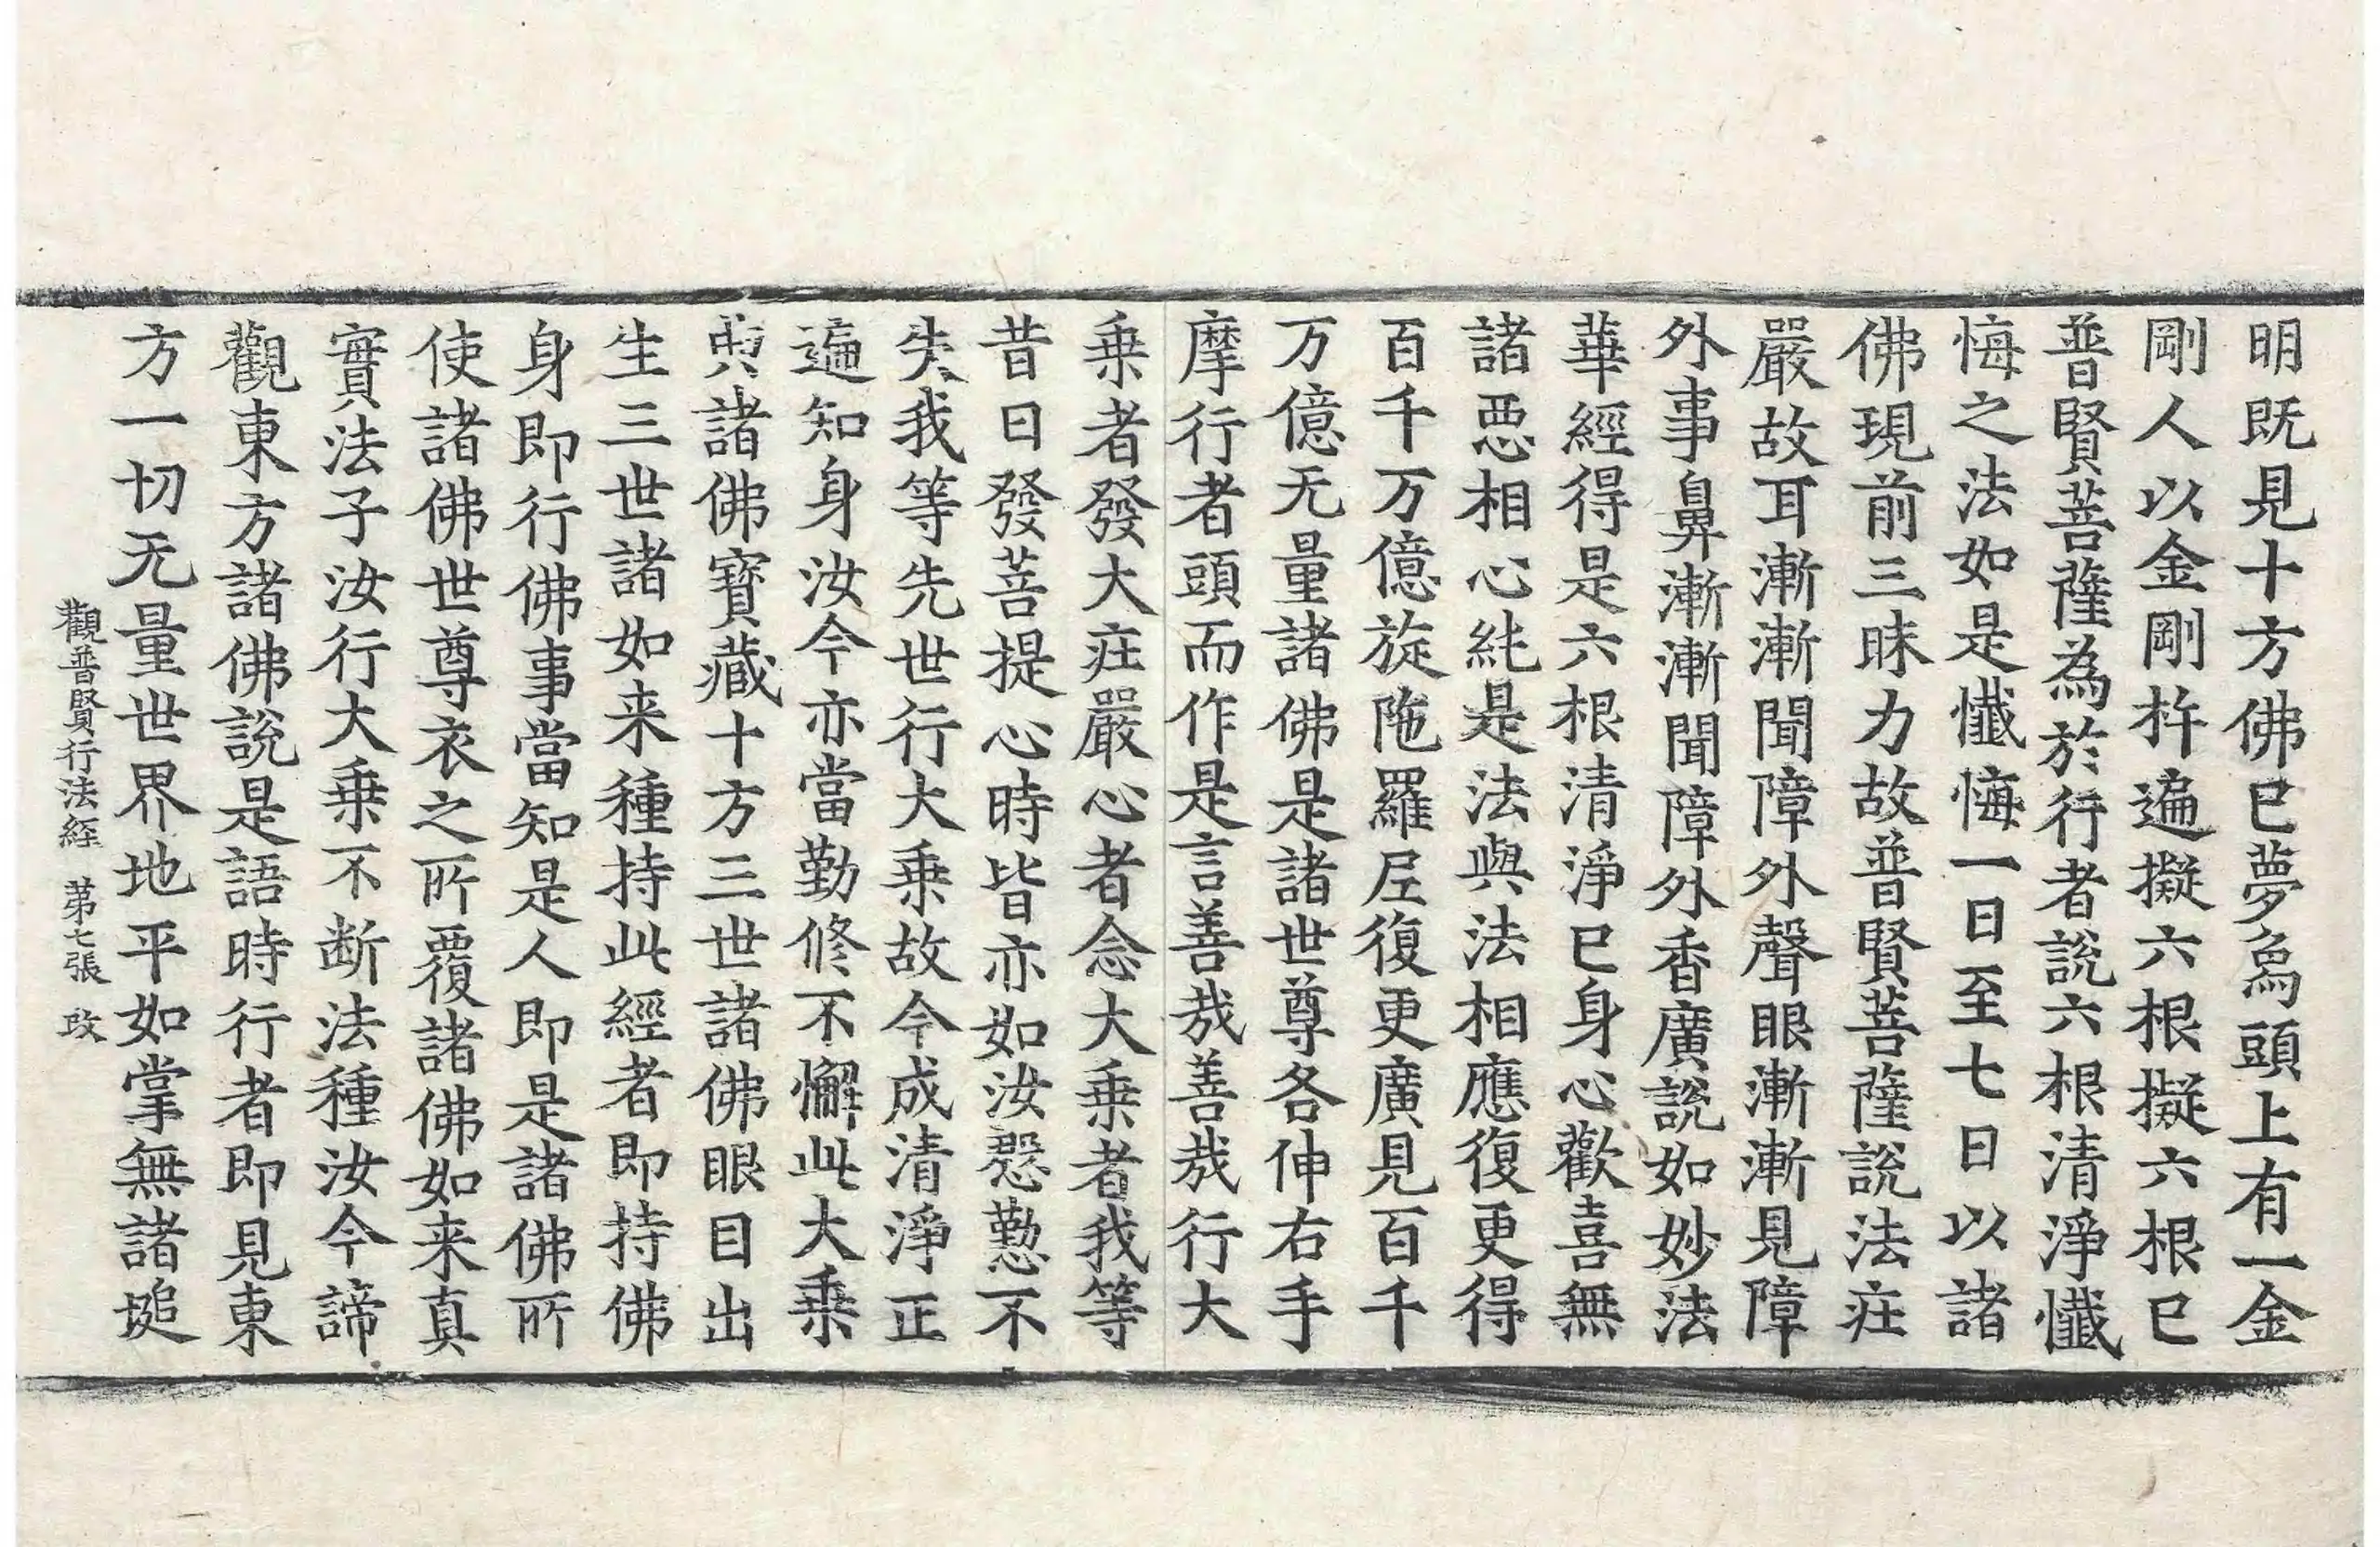 明既見十方佛已夢為頭上有一金
剛人以金剛杵遍擬六根擬六根已
普賢菩薩為於行者說六根清淨懺
悔之法如是懺悔一日至七日以諸
佛現前三昧力故普賢菩薩說法庄
嚴故耳漸漸聞障外聲眼漸漸見障
外事鼻漸漸聞障外香廣說如妙法
華經得是六根清淨已身心歡喜無
諸惡相心純是法與法相應復更得
百千万億旋陁羅尼復更廣見百千
万億无量諸佛是諸世尊各伸右手
摩行者頭而作是言善哉善哉行大
乗者發大庄嚴心者念大乗者我等
昔日發菩提心時皆亦如汝慇懃不
失我等先世行大乗故今成清淨正
遍知身汝今亦當勤修不懈此大乗
典諸佛寳藏十方三世諸佛眼目出
生三世諸如来種持此經者即持佛
身即行佛事當知是人即是諸佛所
使諸佛世尊衣之所覆諸佛如来真
實法子汝行大乗不断法種汝今諦
觀東方諸佛說是語時行者即見東
方一切无量世界地平如掌無諸塠
觀普賢行法経 苐七張 改